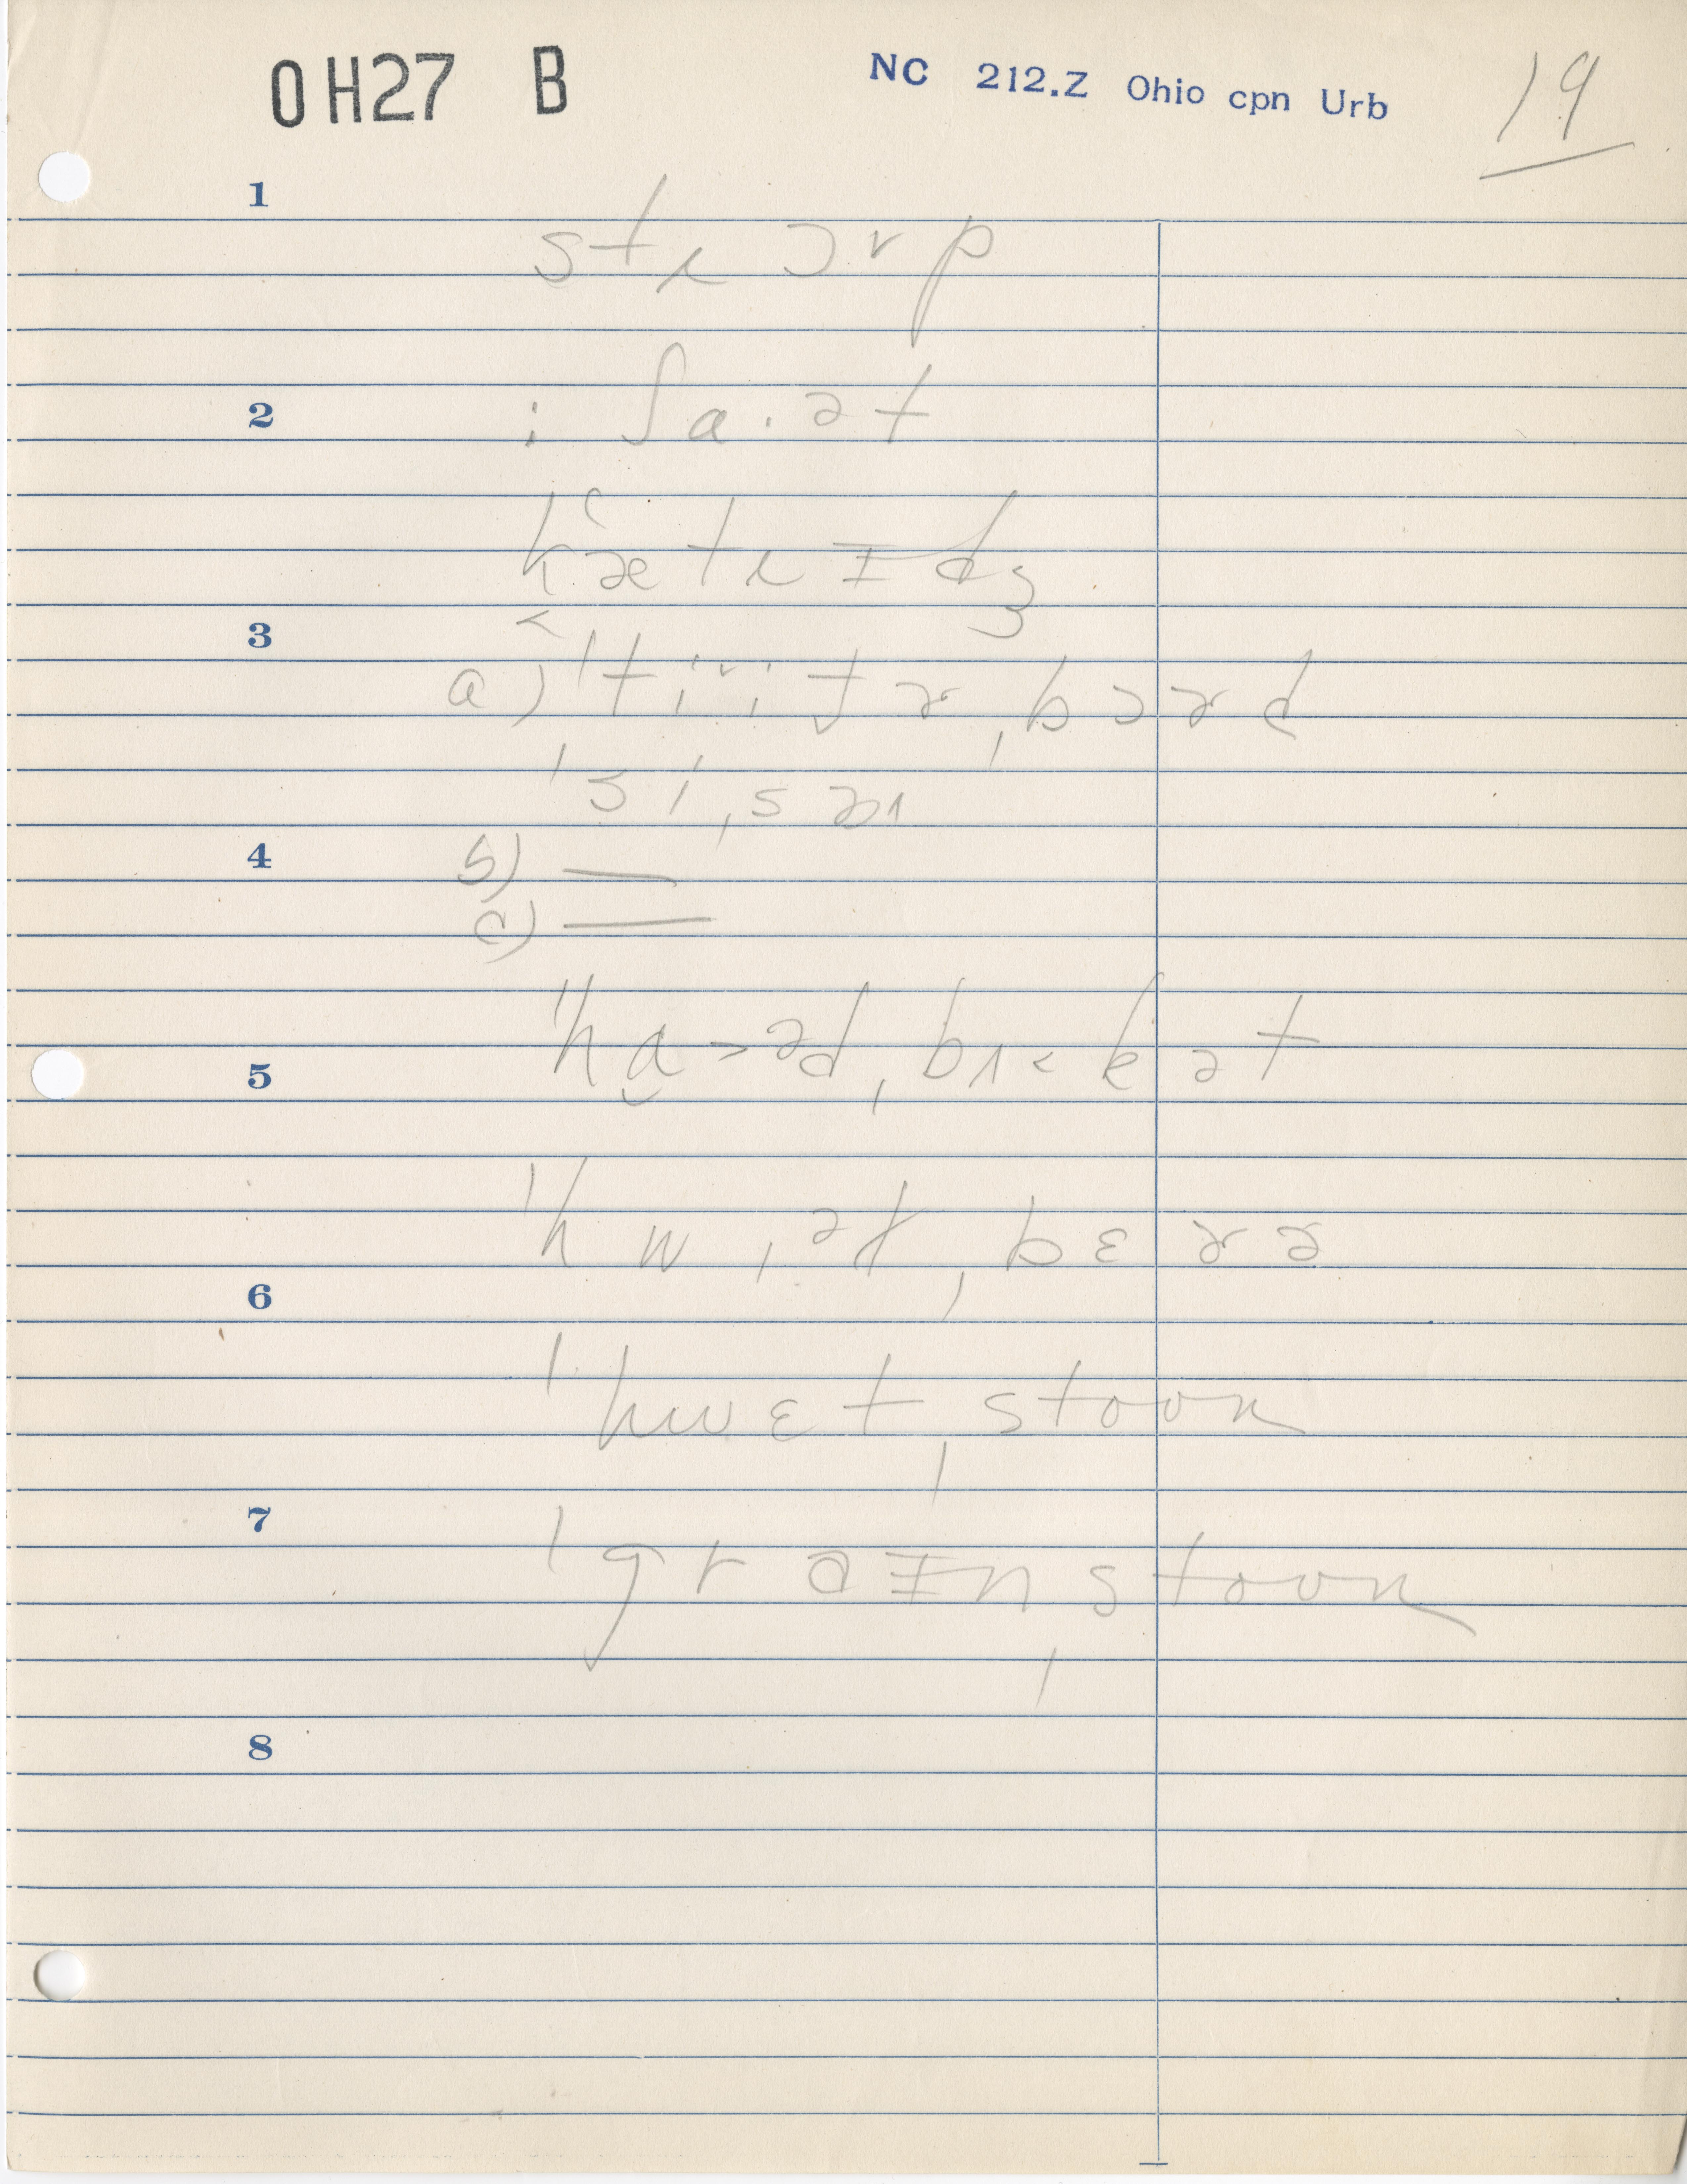 OH27 B NC 212.Z Ohio cpn Urb 19
1
strɔrp
2 ; ʃa·ət
kʽætrɪdʒ
3
a) ˈtiitɚˌbɔɚd
ˈsiˌsɔ
4 b) —
c) —
5 ˈhɑ˃ədˌbʌ˂kət
ˈhwɪətˌbɛɚɚ
6
ˈhwɛtˌstoon
7
ˈgraɪnˌstoon
8